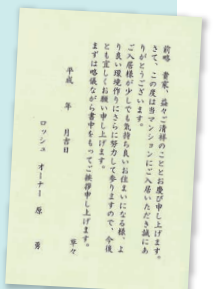 前略　貴家、益々ご清祥のこととお慶び申し上げます。
さて、この度は当マンションにご入居いただき誠にあ
りがとうございます。
ご入居様が少しでも気持ち良いお住まいになる様、よ
り良い環境作りにさらに努力して参りますので、今後
とも宜しくお願い申し上げます。
まずは略儀ながら書中をもってご挨拶申し上げます。
草々
平成　年　月吉日
ロッシュ　オーナー　原　勇